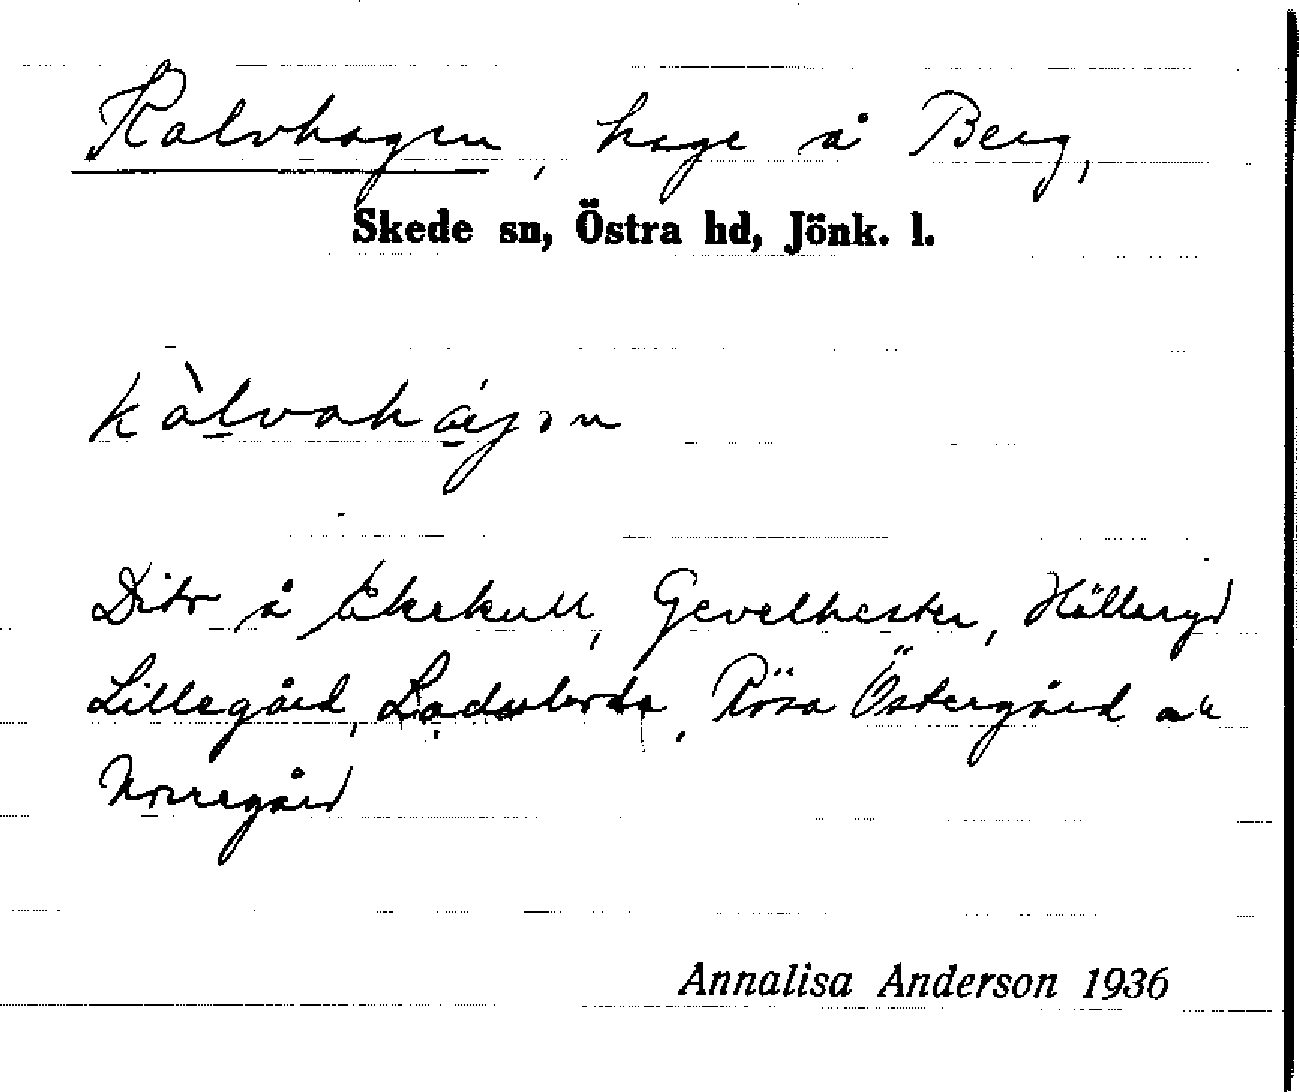 Kalvhagen, hage å Berg,
Skede sn, Östra hd, Jönk. l.
kàlvahá̱gən
Dito å Åkerkull, Gevelhester, Hälleryd
Lillegård, Rössa Östergård och
Norregård
Annalisa Anderson 1936